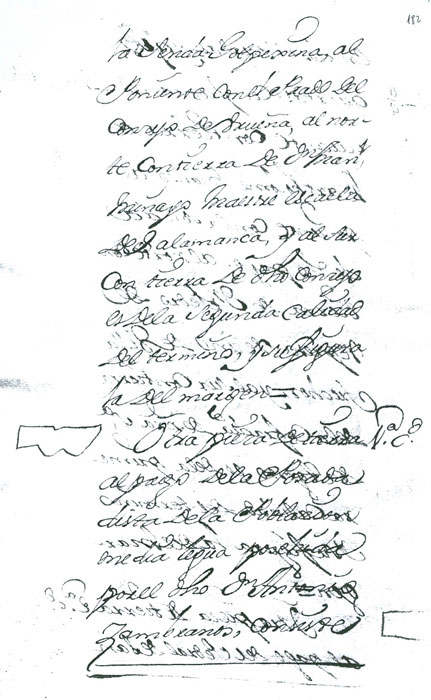 182
la Senda Gallperina, al
Poniente con el Prado del
Conzejo de Brueña, al nor-
te con tierra de Dn Fran.co
Minayo Maestre escuela
de Salamanca, y al sur
con tierra de dho conzejo
es de la Segunda Calidad
del termino, y su figura
la del margen =
Otra pieza de tierra P.a e.a
al pago de la Posada
dista de la Poblacion
media legua poseida
por el dho Dn Antonio
Zambranos, consiste